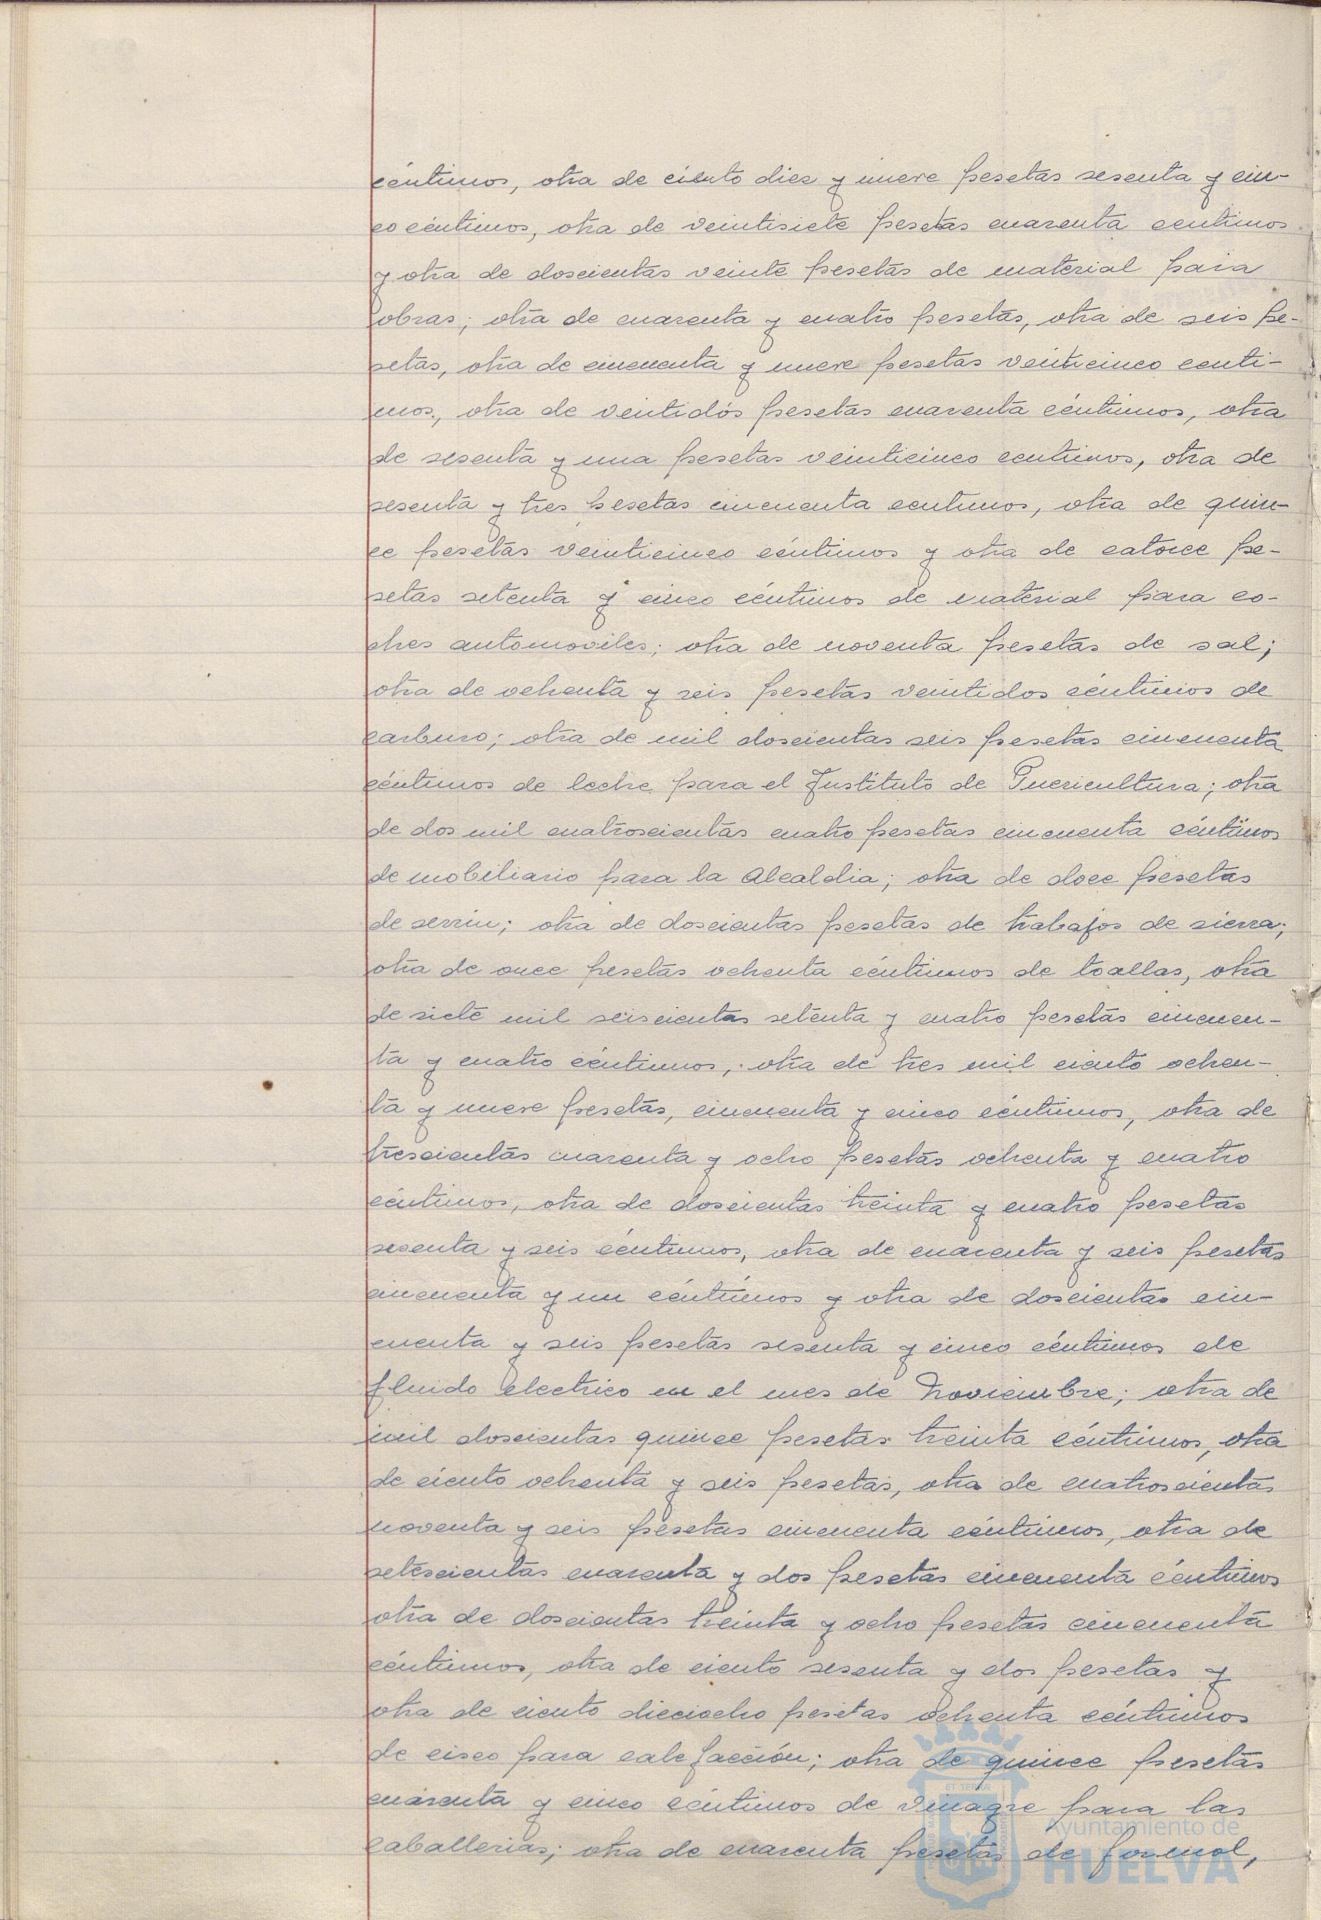 céntimos, otra de ciento diez y nueve pesetas sesenta y cin-
co céntimos, otra de veintisiete pesetas cuarenta centimos
y otra de doscientas veinte pesetas de material para
obras; otra de cuarenta y cuatro pesetas, otra de seis pe-
setas, otra de cincuenta y nueve pesetas veinticinco centi-
mos, otra de veintidós pesetas cuarenta céntimos, otra
de sesenta y una pesetas veinticinco centimos, otra de
sesenta y tres pesetas cincuenta centimos, otra de quin-
ce pesetas veinticinco céntimos y otra de catorce pe-
setas setenta y cinco céntimos de material para co-
ches automoviles; otra de noventa pesetas de sal;
otra de ochenta y seis pesetas veintidos céntimos de
carburo; otra de mil doscientas seis pesetas cincuenta
céntimos de leche para el Instituto de Puericultura; otra
de dos mil cuatroscientas cuatro pesetas cincuenta céntimos
de mobiliario para la Alcaldia; otra de doce pesetas
de serrin; otra de doscientas pesetas de trabajos de sierra;
otra de once pesetas ochenta céntimos de toallas, otra
de siete mil seiscientas setenta y cuatro pesetas cincuen-
ta y cuatro céntimos, otra de tres mil ciento ochen-
ta y nueve pesetas, cincuenta y cinco céntimos, otra de
trescientas cuarenta y ocho pesetas ochenta y cuatro
céntimos, otra de doscientas treinta y cuatro pesetas
sesenta y seis céntimos, otra de cuarenta y seis pesetas
cincuenta y un céntimos y otra de doscientas cin-
cuenta y seis pesetas sesenta y cinco céntimos de
fluido electrico en el mes de Noviembre; otra de
mil doscientas quince pesetas treinta céntimos, otra
de ciento ochenta y seis pesetas, otra de cuatroscientas
noventa y seis pesetas cincuenta céntimos, otra de
setescientas cuarenta y dos pesetas cincuenta céntimos
otra de doscientas treinta y ocho pesetas cincuenta
céntimos, otra de ciento sesenta y dos pesetas y
otra de ciento dieciocho pesetas ochenta céntimos
de cisco para calefacción; otra de quince pesetas
cuarenta y cinco céntimos de vinagre para las
caballerias; otra de cuarenta pesetas de formol,
Ayuntamiento de
HUELVA